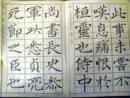 此事未嘗不
嘆息痛恨於
桓靈也侍中
尚書長史參
軍此悉貞亮
死節之臣也